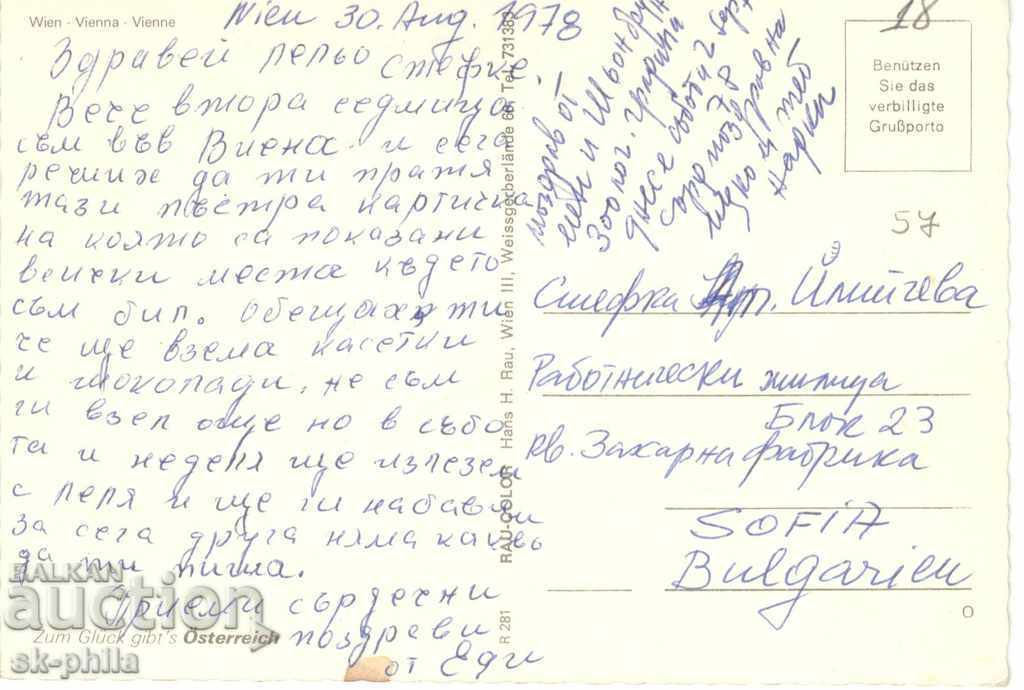 Wien - Vienna - Vienne
Wien 30. Aug. 1978
Здравей лельо Стефке.
Вече втора седмица
съм във Виена и сега
реших да ти пратя
тази пъстра картичка
на която са показани
всички места където
съм бил. Обещах ти
че ще взема касетки
и шоколади, не съм
ги взел още но в събо
та и неделя ще излезем
с леля и ще ги набавим
за сега друга няма какво
да ти пиша.
Приеми сърдечни
поздрави
от Еди
Zum Glück gibt's Österreich
BALKAN
auction
sk-phila
RAU-COLOR Hans H. Rau, Wien III, Weissgerberlände 60, Tel. 731382
R 281
поздрав от
и Шьонбрун
Зоолог. градина
днес събота 2 септ
78
и
18
Benützen
Sie das
verbilligte
Grußporto
57
Стефка Илиичева
Работнически жилища
Блок 23
кв. Захарна фабрика
SOFIA
Bulgarien
O